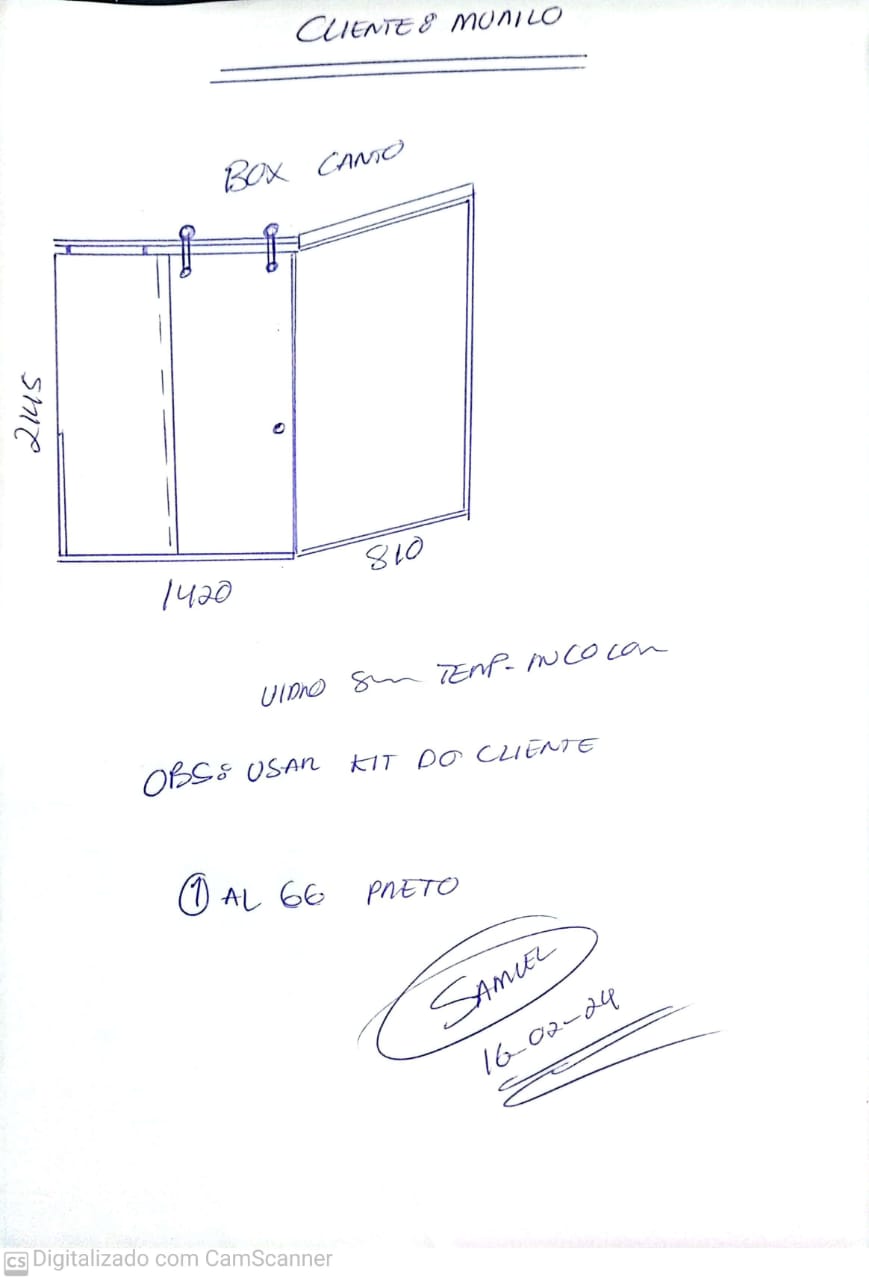 CLIENTE: MURILO
BOX CANTO
2145
1420
810
VIDRO 8mm TEMP- INCOLOR
OBS: USAR KIT DO CLIENTE
① AL 66 PRETO
SAMUEL
16-02-24
CS Digitalizado com CamScanner